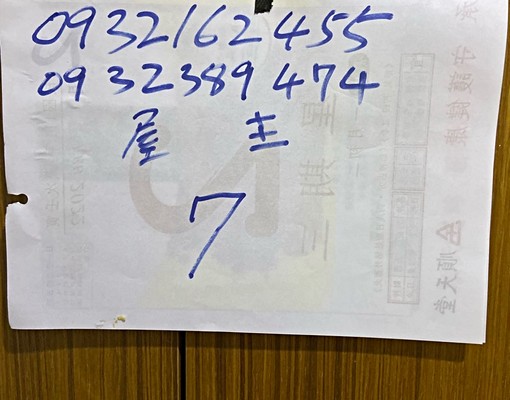 0932162455
0932389474
屋 主
7